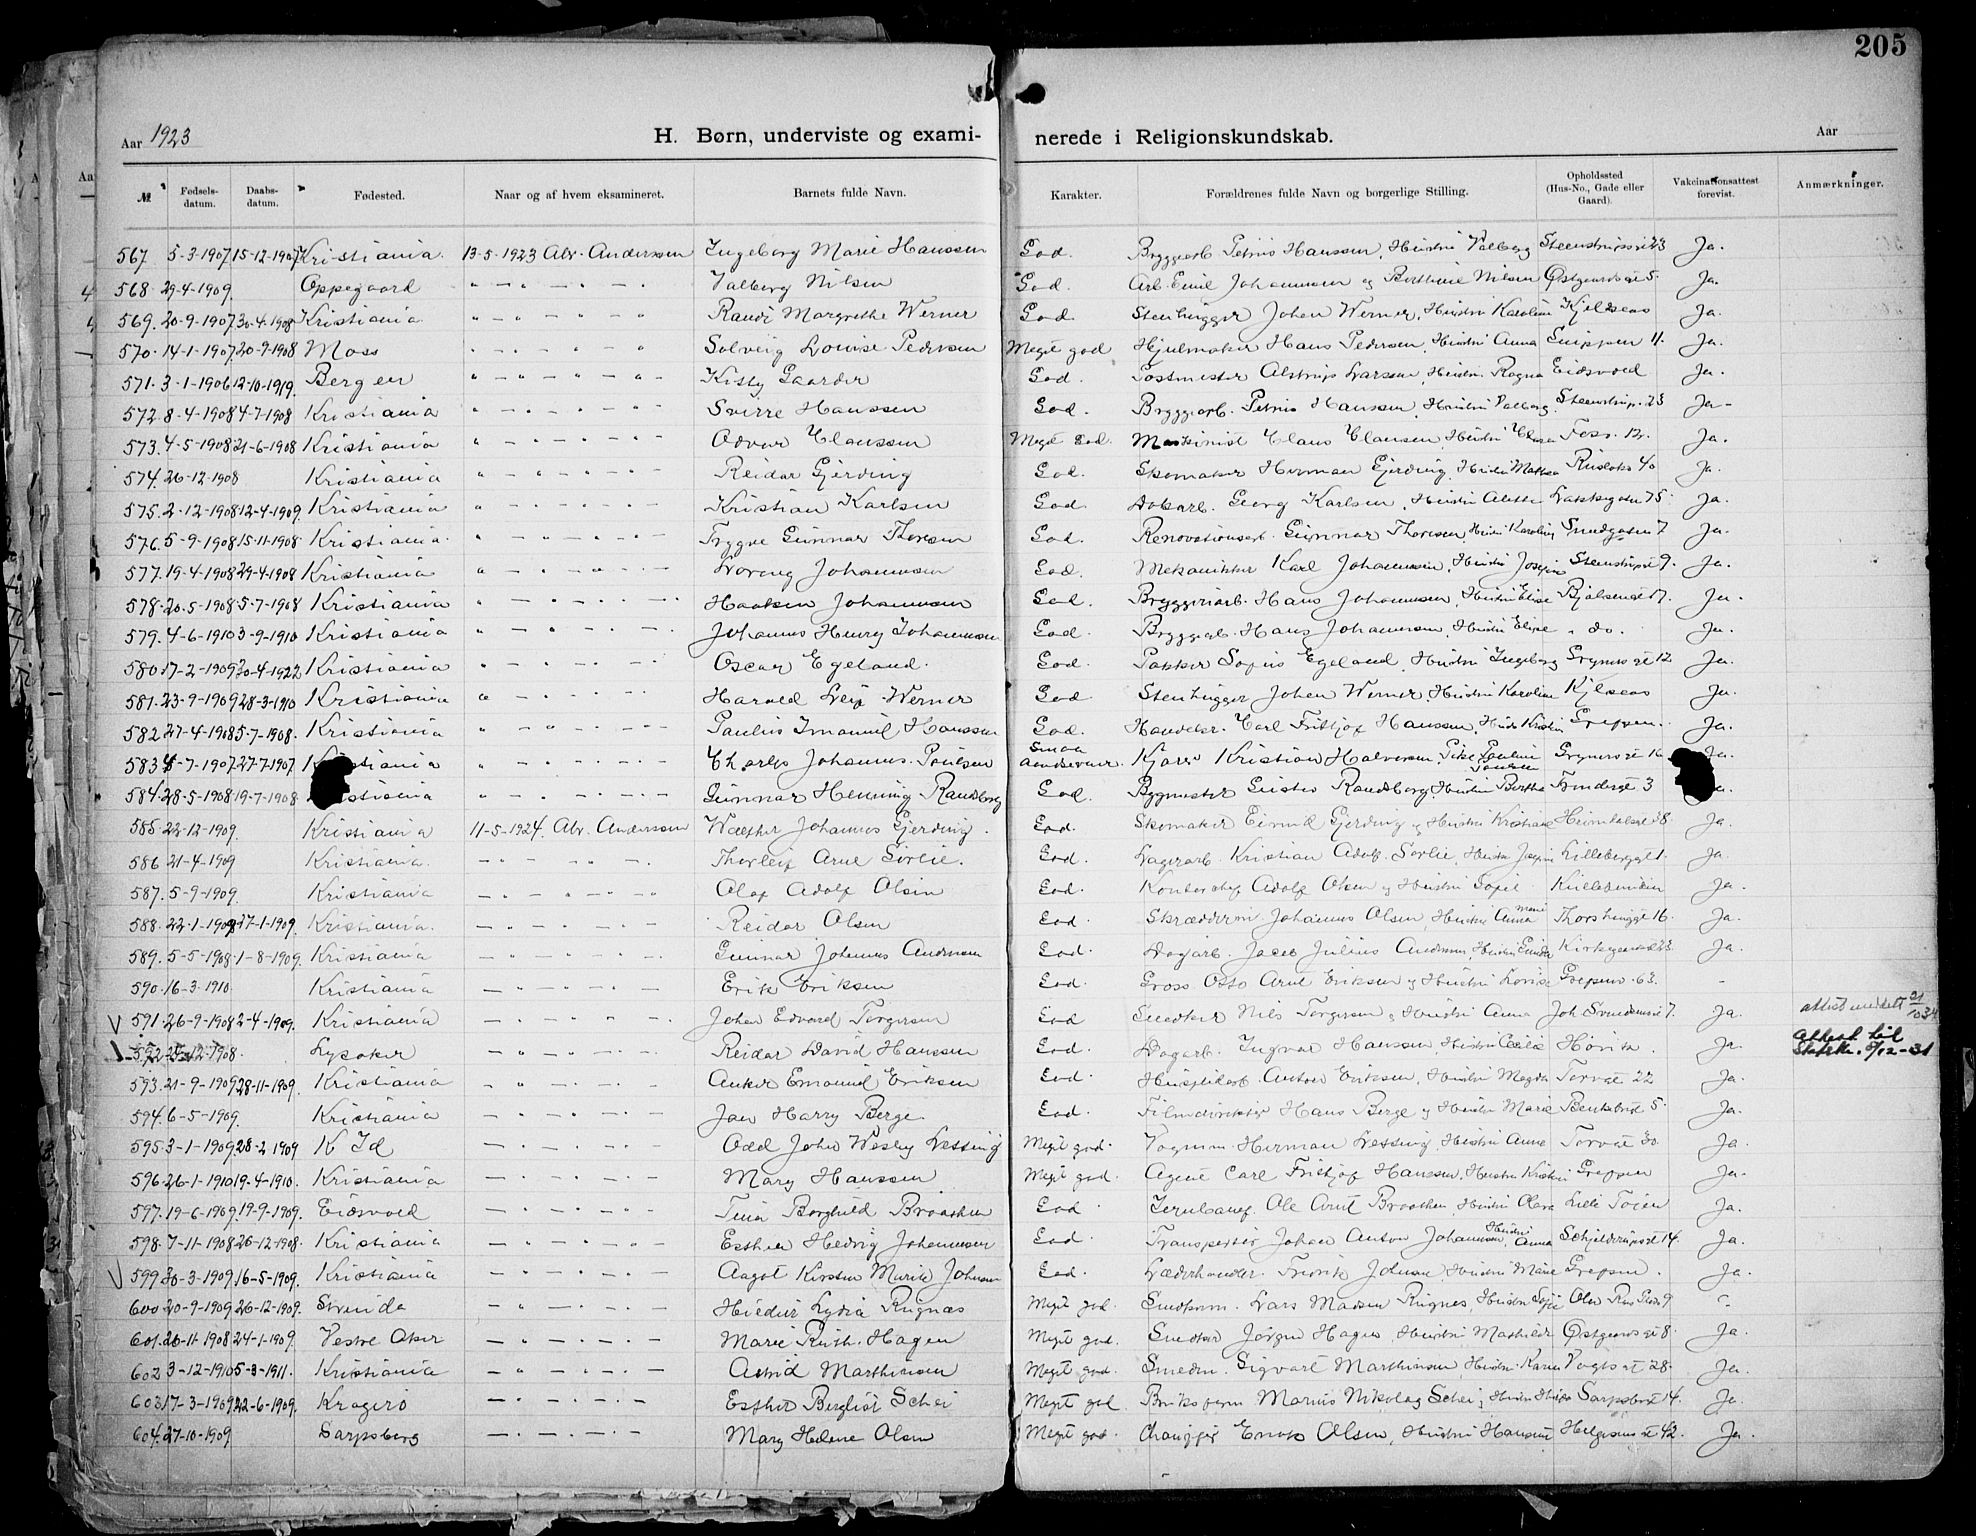 205
Aar 1923 H. Børn, underviste og exami- nerede i Religionskundskab. Aar
№ Fødsels-datum. Daabs-datum. Fødested. Naar og af hvem eksamineret. Barnets fulde Navn. Karakter. Forældrenes fulde Navn og borgerlige Stilling. Opholdssted (Hus-No., Gade eller Gaard). Vakcinationsattest forevist. Anmærkninger.
567 5-3-1907 15-12-1907 Kristiania. 13-5-1923 Alv. Anderssen Ingeborg Marie Hanssen God. Bryggeriarb. Petrus Hanssen, Hustru Valborg Steenstrupsgt 23 Ja.
568. 29-4-1909. Oppegaard " - " - . - Valborg Nilsen God. Arb. Emil Johannesen og Berthine Nilsen Østgaardsgt 5. Ja.
569. 20-9-1907 30-4-1908 Kristiania " - " . " " Randi Margrethe Werner God. Stenhugger Johan Werner, Hustru Karoline Kjelsaas Ja.
570. 14-1-1907 20-9-1908 Moss " . - " - " Solveig Lovise Pedersen Meget god Hjulmaker Hans Pedersen, Hustru Anna Grippen 11. Ja.
571. 3-1-1906 12-10-1919. Bergen " - " - " - " Kitty Gaarder God. Postmester Alstrup Larssen, Hustru Ragna Eidsvold Ja.
572. 8-4-1908 4-7-1908 Kristiania " - . - . " - Sverre Hanssen God. Bryggeriarb. Petrus Hanssen, Hustru Valborg. Steenstrups. 23 Ja.
573. 4-5-1908 21-6-1908 Kristiania " - . - . " - Odvar Clanssen Meget God. Maskinist Claus Clausen, Hustru Foss. 12. Ja.
574. 26-12-1908 Kristiania " - " - " - Reidar Gjerding God. Skomaker Herman Gjerding, Hustru Ruseløk 40 Ja.
575. 2-12-1908 12-4-1909. Kristiania " - . - . - . - Kristian Karlsen God Georg Karlsen, Hustru Lakkegaten 75. Ja.
576. 5-9-1908 15-11-1908. Kristiania. " - " - . - . - Trygve Gunnar Thoresen God. Renovationsarb. Gunnar Thoresen, Hustru Karoline Smedgaten 7 Ja.
577. 19-4-1908 29-4-1908 Kristiania " - . - " - . - Johannesen God. Mekaniker Karl Johannesen, Hustru Josefine Steenstrupsgt 9. Ja.
578. 20-5-1908 5-7-1908 Kristiania " - . - . - . - Haakon Johannesen God. Bryggeriarb. Hans Johannesen, Hustru Elise Bjølsengt 17. Ja.
579. 4-6-1910 3-9-1910 Kristiania " - . - . - . - Johannes Henry Johannessen God. Bryggeriarb. Hans Johannesen, Hustru Elise " do. Ja.
580. 17-2-1909 30-4-1922 Kristiania " - . - . - . - Oscar Egeland. God. Pakker Sofus Egeland, Hustru Ingeborg Grynersgt 12 Ja.
581. 23-9-1909 28-3-1910 Kristiania " - . - . - . - Harald Leif Werner God Stenhugger Johan Werner, Hustru Karoline Kjelsaas Ja.
582. 27-4-1908 5-7-1908. Kristiania " - . - . - . - Paulus Imanuel Hanssen God. Carl Fritjof Hanssen, Hustru Kristin Grefsen. Ja.
583. 5-7-1907. 27-7-1907 Kristiania " - . - . - . - Charles Johannes Poulsen Smaa Kristian Halvorsen, Pike Pauline Poulsen Grynersgt 16 Ja.
584. 28-5-1908 19-7-1908 Kristiania " - . - . - . - Gunnar Henning Randborg God. Bygmester Gustav Randborg, Hustru Berthe Trondergt 3 Ja.
585. 22-12-1909. Kristiania 11-5-1924. Alv. Anderssen Walther Johannes Gjerding. God. Skomaker Gjerding og Hustru Kristiane Heimdalsgt 28. Ja.
586 21-4-1909 Kristiania. - . - " - . - Thorleif Arne Sörlie. God. Lagerarb. Kristian Adolf Sörlie, Hustru Lilleborggt 1. Ja.
587. 5-9-1909. Kristiania - . - " - " Olaf Adolf Olsen God. Kontorchef Adolf Olsen og Hustru Sofie Ja.
588. 22-1-1909 27-1-1909. Kristiania. - . - . - . - Reidar Olsen God Skræddersv. Johannes Olsen, Hustru Anna Marie Thorshauggt 16. Ja.
589. 5-5-1908. 1-8-1909. Kristiania - . - . - . - Gunnar Johannes Andersen God. Dagarb. Jacob Julius Andersen, Hustru Kirkegaardsgt 23. Ja.
590. 16-3-1910 Kristiania - . - . - . - Erik Eriksen God. Gross. Otto Arnt Eriksen og Hustru Lovise Grefsenv. 63. -
V 591. 26-9-1908 2-4-1909. Kristiania - . - . - . - Johan Edvard Torgersen God Snedker Nils Torgersen og Hustru Anna Joh Svendsensgt 7. Ja. attest meddelt 21/10 34
V 592. 12-1908. Lysaker - . - . - . - Reidar David Hanssen God. Dagarb. Ingvar Hanssen, Hustru Cecilie Høvik. Ja. Attest til 8/12-31
593. 21-9-1909 28-11-1909. Kristiania - . - . - . - Anker Emanuel Eriksen God. Anton Eriksen, Hustru Magda Torvgt 22 Ja.
594. 6-5-1909. Kristiania - . - . - . - Jan Harry Berge God. Filmdirektør Hans Berge og Hustru Marie Benkebrt 5. Ja.
595. 3-1-1909. 28-2-1909 K Id - . - . - . - Odd John Wesley Lessing Meget god. Vognm. Herman Lessing, Hustru Anna Torvgt 30. Ja.
596. 26-1-1910 19-4-1910. Kristiania - . - . - . - Mary Hanssen Meget god. Agent Carl Fritjof Hanssen, Hustru Kristin Grefsen Ja.
597. 19-6-1909. 19-9-1909. Eidsvold - . - . - . - Tina Borghild Braathen God Ole Arnt Braathen, Hustru Clara Lille Tøien Ja.
598. 7-11-1908 26-12-1908. Kristiania - . - . - . - Esther Hedvig Johannesen God. Transportør Johan Anton Johannesen, Hustru Anna Schjelderupsgt 14. Ja.
V 599. 30-3-1909 16-5-1909. Kristiania - . - . - . - Aagot Kirsten Marie Johnsen God. Læderhandler Fredrik Johnsen, Hustru Marie Grefsen. Ja.
600 20-9-1909 26-12-1909. Strinda - " - . - . - Lydia Rugnæs Meget god. Snedkerm. Lars Madsen Rugnes, Hustru Sofie Olav Rus Plads 9
601. 26-11-1908 24-1-1909. Vestre Aker - . - . - . - Marie Ruth. Hagen Meget god. Snedker Jørgen Hagen, Hustru Mathilde Østgaardsgt 8. Ja.
602 3-12-1910 5-3-1911. Kristiania - . - . - . - Astrid Marthinsen Meget god. Smedm. Sigvart Marthinsen, Hustru Karen Vogtsgt 28. Ja.
603. 17-3-1909 22-6-1909. Kragerö - . - . - . - Esther Bergliot Schei Meget god. Marius Nikolay Schei, Hustru Sarpsborggt 14. Ja.
604. 27-10-1909 Sarpsborg - . - . - . - Mary Helene Olsen Meget god. Enok Olsen, Hustru Helgesensgt 42. Ja.